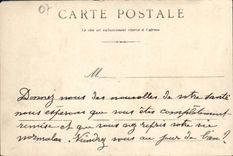 07
CARTE POSTALE
Ce côté est exclusivement réservé à l'adresse
M
Donnez nous des nouvelles de votre santé
nous espérons que vous êtes complètement
remise et que vous avez repris votre vie
normale. Viendrez vous au jour de l'an ?